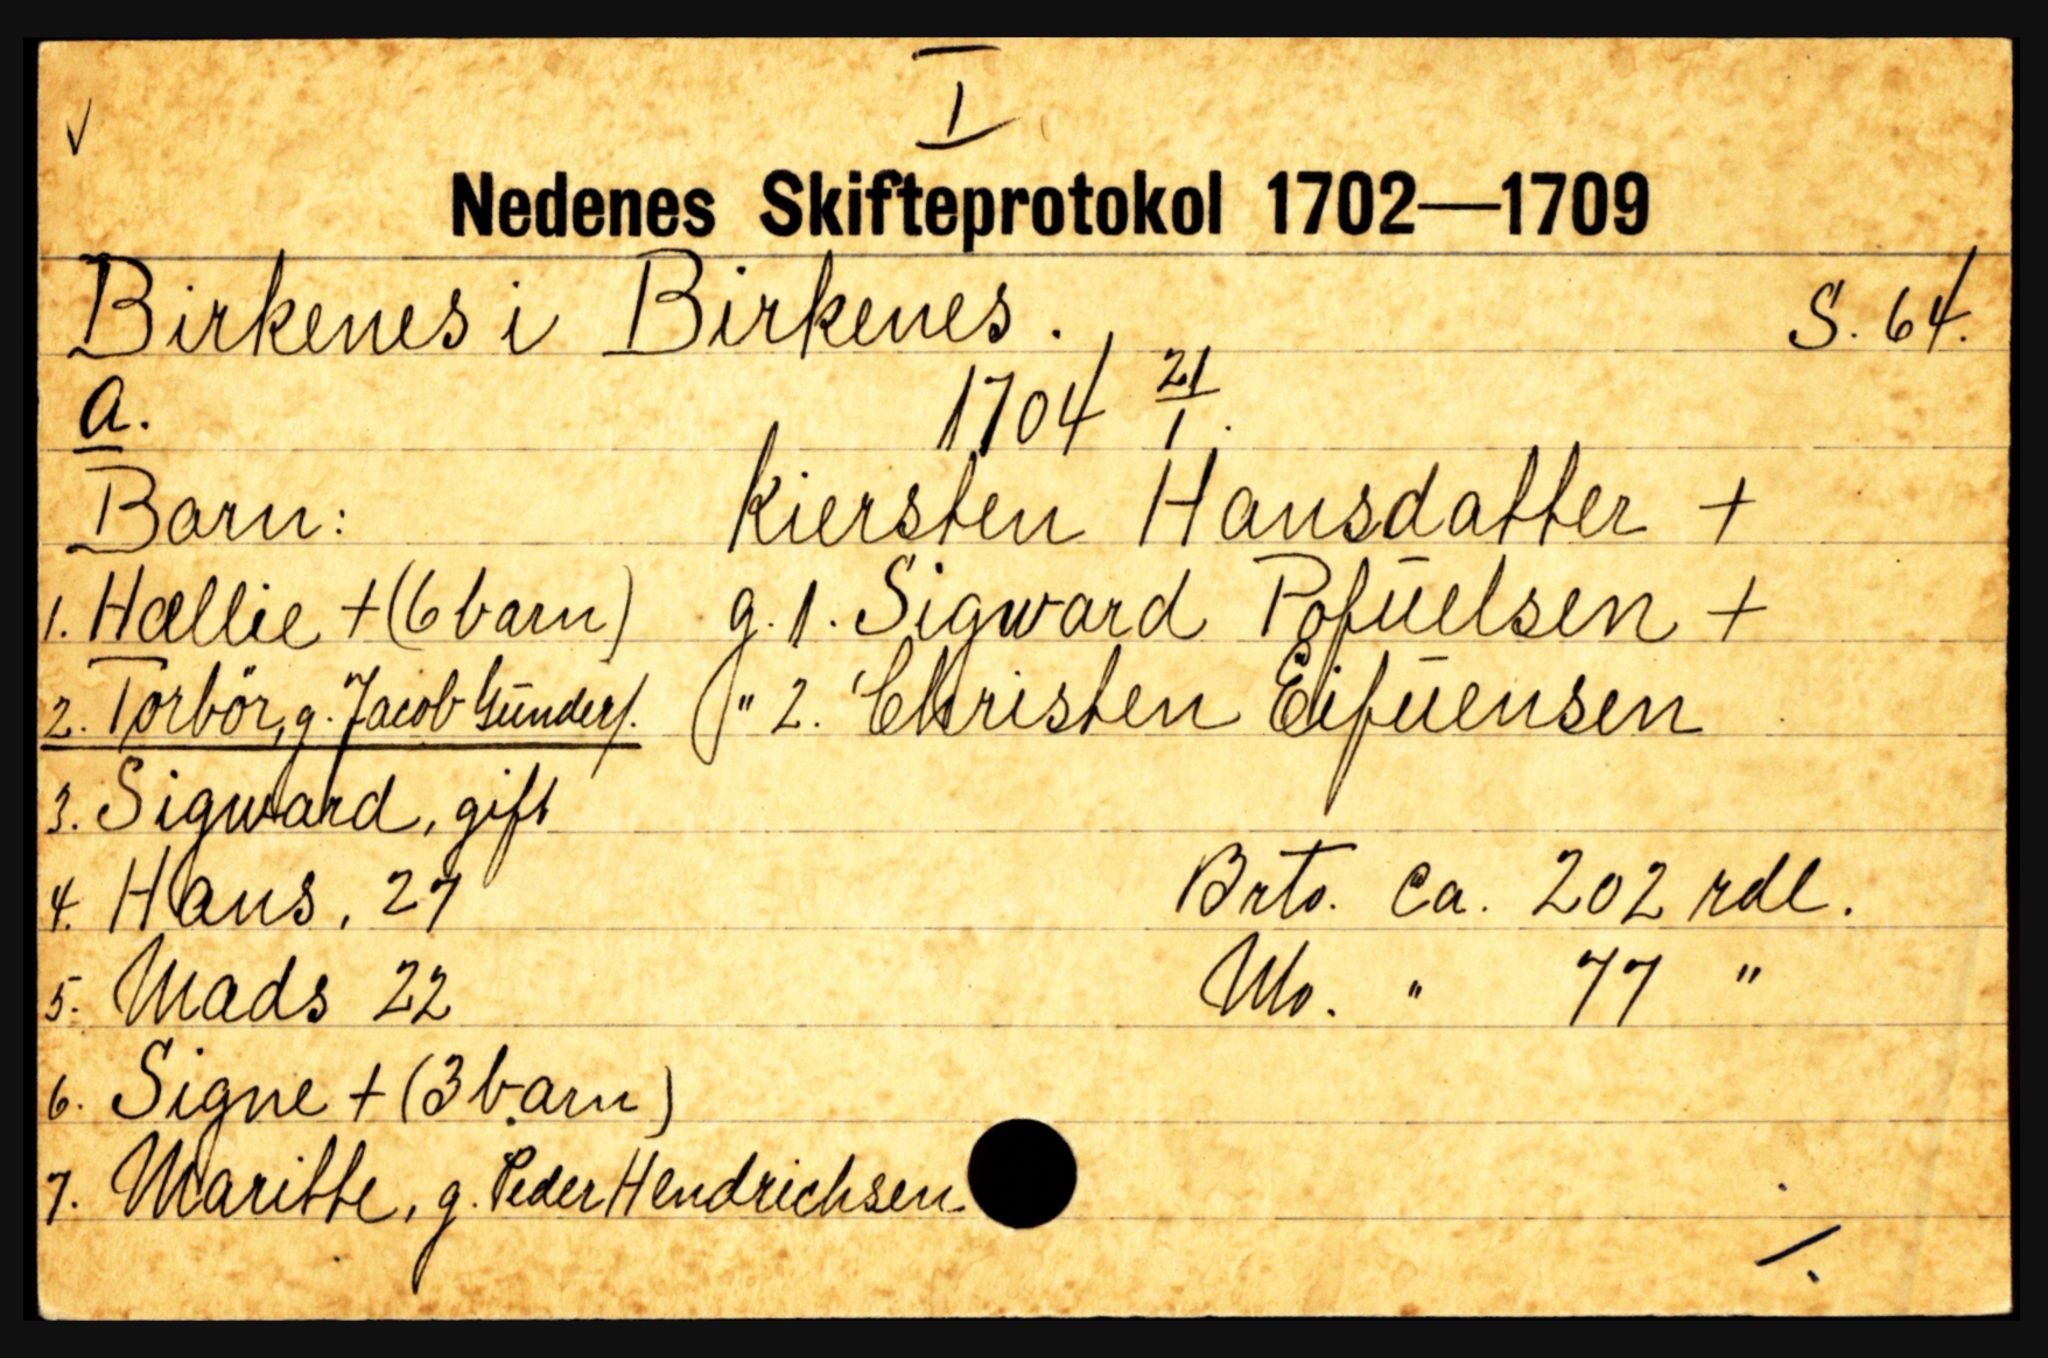 I
Nedenes Skifteprotokol 1702—1709
Birkenes i Birkenes. S. 64.
a. 1704 21/1.
Barn: Kiersten Hansdatter +
1. Hællie + (6 barn) g. 1. Sigward Pofūelsen +
2. Torbör, g. Jacob Gūnders. " 2. Christen Eifūensen
3. Sigward, gift
4. Hans, 27 Brto. ca. 202 rdl.
5. Mads 22 Nto. " 77 "
6. Signe + (3 barn)
7. Maritte, g. Peder Hendrichsen